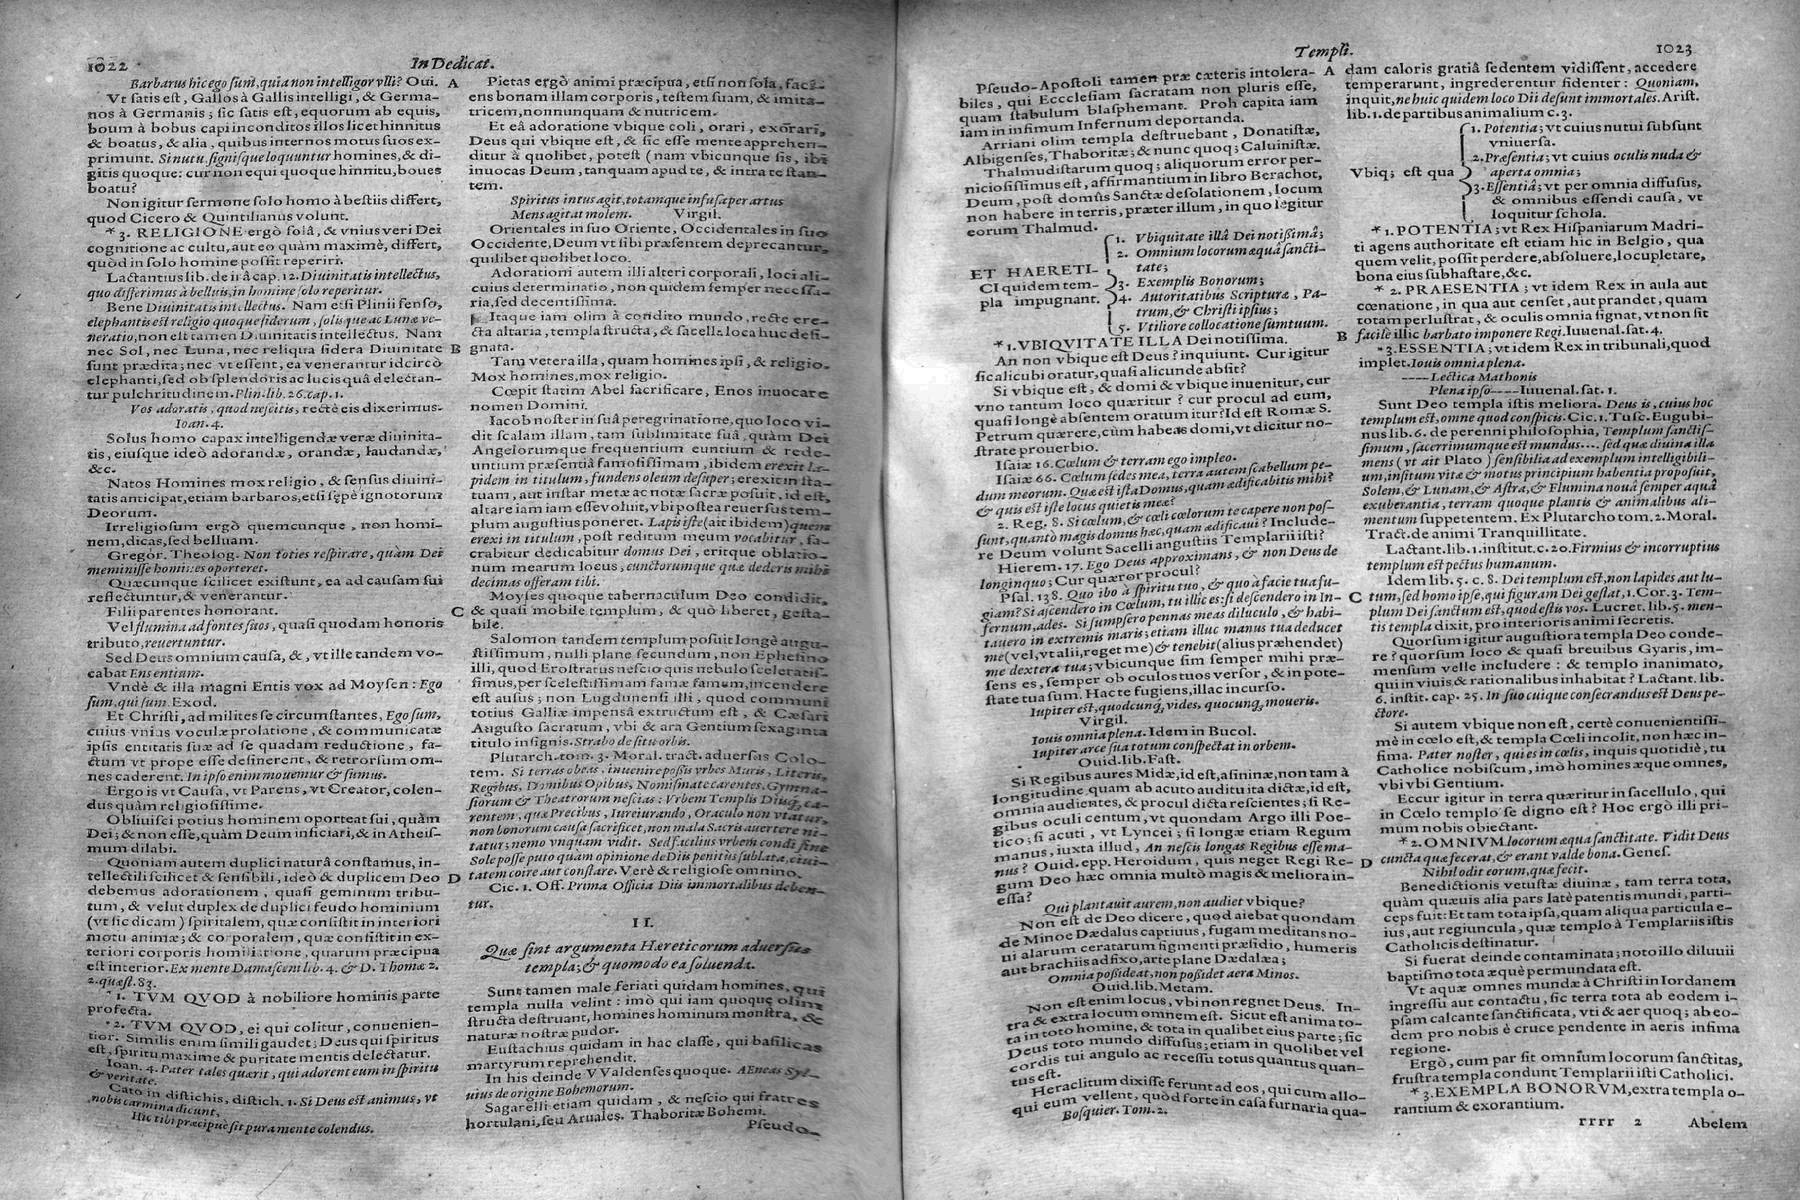 1022
In Dedicat.
Barbarus hic ego sum, quia non intelligor vlli? Oui.
Vt satis est, Gallos à Gallis intelligi, & Germa-
nos à Germanis; sic satis est, equorum ab equis,
boum à bobus capi inconditos illos licet hinnitus
& boatus, & alia, quibus internos motus suos ex-
primunt. Si nutu signisque loquuntur homines, & di-
gitis quoque: cur non equi quoque hinnitu, boues
boatu?
Non igitur sermone solo homo à bestiis differt,
quod Cicero & Quintilianus volunt.
*3. RELIGIONE ergò solâ, & vnius veri Dei
cognitione ac cultu, aut eo quàm maximè, differt,
quòd in solo homine possit reperiri.
Lactantius lib. de irâ cap. 12. Diuinitatis intellectus,
quo differimus à belluis, in homine solo reperitur.
Bene Diuinitatis intellectus. Nam etsi Plinii senso,
elephantis est religio quoque siderum, solisque ac Lunæ ve-
neratio, non est tamen Diuinitatis intellectus. Nam
nec Sol, nec Luna, nec reliqua sidera Diuinitate
sunt prædita; nec vt essent, ea venerantur idcircò
elephanti, sed ob splendoris ac lucis quâ delectan-
tur pulchritudinem. Plin. lib. 26. cap. 1.
Vos adoratis, quod nescitis, rectè eis dixerimus.
Ioan. 4.
Solus homo capax intelligendæ veræ diuinita-
tis, eiusque ideò adorandæ, orandæ, laudandæ,
&c.
Natos Homines mox religio, & sensus diuini-
tatis anticipat, etiam barbaros, etsi sępè ignotorum
Deorum.
Irreligiosum ergò quemcunque, non homi-
nem, dicas, sed belluam.
Gregor. Theolog. Non toties respirare, quàm Dei
meminisse homines oporteret.
Quæcunque scilicet existunt, ea ad causam sui
reflectuntur, & venerantur.
Filii parentes honorant.
Vel flumina ad fontes suos, quasi quodam honoris
tributo, reuertuntur.
Sed Deus omnium causa, &, vt ille tandem vo-
cabat Ens entium.
Vndè & illa magni Entis vox ad Moysen: Ego
sum, qui sum. Exod.
Et Christi, ad milites se circumstantes, Ego sum,
cuius vnius voculæ prolatione, & communicatæ
ipsis entitatis suæ ad se quadam reductione, fa-
ctum vt prope esse desinerent, & retrorsum om-
nes caderent. In ipso enim mouemur & sumus.
Ergo is vt Causa, vt Parens, vt Creator, colen-
dus quàm religiosissime.
Obliuisci potius hominem oporteat sui, quàm
Dei; & non esse, quàm Deum inficiari, & in Atheis-
mum dilabi.
Quoniam autem duplici naturâ constamus, in-
tellectili scilicet & sensibili, ideò & duplicem Deo
debemus adorationem, quasi geminum tribu-
tum, & velut duplex de duplici feudo hominium
(vt sic dicam) spiritalem, quæ consistit in interiori
motu animæ; & corporalem, quæ consistit in ex-
teriori corporis humiliatione, quarum præcipua
est interior. Ex mente Damasceni lib. 4. & D. Thomæ 2.
2. quæst. 83.
*1. TVM QVOD à nobiliore hominis parte
profecta.
*2. TVM QVOD, ei qui colitur, conuenien-
tior. Similis enim simili gaudet; Deus qui spiritus
est, spiritu maxime & puritate mentis delectatur.
Ioan. 4. Pater tales quærit, qui adorent eum in spiritu
& veritate.
Cato in distichis, distich. 1. Si Deus est animus, vt
nobis carmina dicunt,
Hic tibi præcipuè sit pura mente colendus.
A
B
C
D
Pietas ergò animi præcipua, etsi non sola, faci-
ens bonam illam corporis, testem suam, & imita-
tricem, nonnunquam & nutricem.
Et eâ adoratione vbique coli, orari, exorari,
Deus qui vbique est, & sic esse mente apprehen-
ditur à quolibet, potest (nam vbicunque sis, ibi
inuocas Deum, tanquam apud te, & intra te stan-
tem.
Spiritus intus agit, totamque infusa per artus
Mens agitat molem. Virgil.
Orientales in suo Oriente, Occidentales in suo
Occidente, Deum vt sibi præsentem deprecantur,
quilibet quolibet loco.
Adorationi autem illi alteri corporali, loci ali-
cuius determinatio, non quidem semper necessa-
ria, sed decentissima.
Itaque iam olim à condito mundo, recte ere-
cta altaria, templa structa, & sacella loca huc desi-
gnata.
Tam vetera illa, quam homines ipsi, & religio.
Mox homines, mox religio.
Cœpit statim Abel sacrificare, Enos inuocare
nomen Domini.
Iacob noster in suâ peregrinatione, quo loco vi-
dit scalam illam, tam sublimitate suâ, quàm Dei
Angelorumque frequentium euntium & rede-
untium præsentiâ famosissimam, ibidem erexit la-
pidem in titulum, fundens oleum desuper; erexit in sta-
tuam, aut instar metæ ac notæ sacræ posuit, id est,
altare iam iam esse voluit, vbi postea reuersus tem-
plum augustius poneret. Lapis iste (ait ibidem) quem
erexi in titulum, post reditum meum vocabitur, sa-
crabitur dedicabitur domus Dei, eritque oblatio-
num mearum locus, cunctorumque quæ dederis mihi
decimas offeram tibi.
Moyses quoque tabernaculum Deo condidit,
& quasi mobile templum, & quò liberet, gesta-
bile.
Salomon tandem templum posuit longè augu-
stissimum, nulli plane secundum, non Ephesino
illi, quod Erostratus nescio quis nebulo sceleratis-
simus, per scelestissimam famæ famem, incendere
est ausus; non Lugdunensi illi, quod communi
totius Galliæ impensâ extructum est, & Cæsari
Augusto sacratum, vbi & ara Gentium sexaginta
titulo insignis. Strabo de situ orbis.
Plutarch. tom. 3. Moral. tract. aduersus Colo-
tem. Si terras obeas, inuenire possis vrbes Muris, Literis,
Regibus, Domibus Opibus, Nomismate carentes, Gymna-
siorum & Theatrorum nescias: Vrbem Templis Diisq; ca-
rentem, quæ Precibus, Iureiurando, Oraculo non vtatur,
non bonorum causa sacrificet, non mala Sacris auertere ni-
tatur; nemo vnquam vidit. Sed facilius vrbem condi sine
Sole posse puto quam opinione de Diis penitus sublata, ciui-
tatem coire aut constare. Verè & religiose omnino.
Cic. 1. Off. Prima Officia Diis immortalibus deben-
tur.
II.
Quæ sint argumenta Hæreticorum aduersus
templa; & quomodo ea soluenda.
Sunt tamen male feriati quidam homines, qui
templa nulla velint: imò qui iam quoque olim
structa destruant, homines hominum monstra, &
naturæ nostræ pudor.
Eustachius quidam in hac classe, qui basilicas
martyrum reprehendit.
In his deinde VValdenses quoque. AEneas Syl-
uius de origine Bohemorum.
Sagarelli etiam quidam, & nescio qui fratres
hortulani, seu Aruales. Thaboritæ Bohemi.
Pseudo-
Templi.
1023
Pseudo-Apostoli tamen præ cæteris intolera-
biles, qui Eccclesiam sacratam non pluris esse,
quam stabulum blasphemant. Proh capita iam
iam in infimum Infernum deportanda.
Arriani olim templa destruebant, Donatistæ,
Albigenses, Thaboritæ; & nunc quoq; Caluinistæ.
Thalmudistarum quoq; aliquorum error per-
niciosissimus est, affirmantium in libro Berachot,
Deum, post domûs Sanctæ desolationem, locum
non habere in terris, præter illum, in quo legitur
eorum Thalmud.
ET HAERETI-
CI quidem tem-
pla impugnant.
1. Vbiquitate illâ Dei notissimâ;
2. Omnium locorum æquâ sancti-
tate;
3. Exemplis Bonorum;
4. Autoritatibus Scripturæ, Pa-
trum, & Christi ipsius;
5. Vtiliore collocatione sumtuum.
*1. VBIQVITATE ILLA Dei notissima.
An non vbique est Deus? inquiunt. Cur igitur
sic alicubi oratur, quasi alicunde absit?
Si vbique est, & domi & vbique inuenitur, cur
vno tantum loco quæritur? cur procul ad eum,
quasi longè absentem oratum itur? Id est Romæ S.
Petrum quærere, cùm habeas domi, vt dicitur no-
strate prouerbio.
Isaiæ 16. Cœlum & terram ego impleo.
Isaiæ 66. Cœlum sedes mea, terra autem scabellum pe-
dum meorum. Quæ est ista Domus, quam ædificabitis mihi?
& quis est iste locus quietis meæ?
2. Reg. 8. Si cœlum, & cœli cœlorum te capere non pos-
sunt, quantò magis domus hæc, quam ædificaui? Include-
re Deum volunt Sacelli angustiis Templarii isti?
Hierem. 17. Ego Deus approximans, & non Deus de
longinquo; Cur quæror procul?
Psal. 138. Quo ibo à spiritu tuo, & quo à facie tua fu-
giam? Si ascendero in Cœlum, tu illic es: si descendero in In-
fernum, ades. Si sumpsero pennas meas diluculo, & habi-
tauero in extremis maris; etiam illuc manus tua deducet
me (vel, vt alii, reget me) & tenebit (alius præhendet)
me dextera tua; vbicunque sim semper mihi præ-
sens es, semper ob oculos tuos versor, & in pote-
state tua sum. Hac te fugiens, illac incurso.
Iupiter est, quodcunq; vides, quocunq; moueris.
Virgil.
Iouis omnia plena. Idem in Bucol.
Iupiter arce sua totum conspectat in orbem.
Ouid. lib. Fast.
Si Regibus aures Midæ, id est, asininæ, non tam à
longitudine quam ab acuto auditu ita dictæ, id est,
omnia audientes, & procul dicta rescientes; si Re-
gibus oculi centum, vt quondam Argo illi Poe-
tico; si acuti, vt Lyncei; si longæ etiam Regum
manus, iuxta illud, An nescis longas Regibus esse ma-
nus? Ouid. epp. Heroidum, quis neget Regi Re-
gum Deo hæc omnia multò magis & meliora in-
essa?
Qui plantauit aurem, non audiet vbique?
Non est de Deo dicere, quod aiebat quondam
de Minoe Dædalus captiuus, fugam meditans no-
ui alarum ceratarum figmenti præsidio, humeris
aut brachiis adfixo, arte plane Dædalæa;
Omnia possideat, non possidet aera Minos.
Ouid. lib. Metam.
Non est enim locus, vbi non regnet Deus. In-
tra & extra locum omnem est. Sicut est anima to-
ta in toto homine, & tota in qualibet eius parte; sic
Deus toto mundo diffusus; etiam in quolibet vel
cordis tui angulo ac recessu totus quantus quan-
tus est.
Heraclitum dixisse ferunt ad eos, qui cum allo-
qui eum vellent, quòd forte in casa furnaria qua-
Bosquier. Tom. 2.
A
B
C
D
dam caloris gratiâ sedentem vidissent, accedere
temperarunt, ingrederentur fidenter: Quoniam,
inquit, ne huic quidem loco Dii desunt immortales. Arist.
lib. 1. de partibus animalium c. 3.
Vbiq; est qua
1. Potentia; vt cuius nutui subsunt
vniuersa.
2. Præsentia; vt cuius oculis nuda &
aperta omnia;
3. Essentiâ; vt per omnia diffusus,
& omnibus essendi causa, vt
loquitur schola.
*1. POTENTIA; vt Rex Hispaniarum Madri-
ti agens authoritate est etiam hic in Belgio, qua
quem velit, possit perdere, absoluere, locupletare,
bona eius subhastare, &c.
*2. PRAESENTIA; vt idem Rex in aula aut
cœnatione, in qua aut censet, aut prandet, quam
totam perlustrat, & oculis omnia signat, vt non sit
facile illic barbato imponere Regi. Iuuenal. sat. 4.
*3. ESSENTIA; vt idem Rex in tribunali, quod
implet. Iouis omnia plena.
----Lectica Mathonis
Plena ipso----Iuuenal. sat. 1.
Sunt Deo templa istis meliora. Deus is, cuius hoc
templum est, omne quod conspicis. Cic. 1. Tusc. Eugubi-
nus lib. 6. de perenni philosophia, Templum sanctis-
simum, sacerrimumque est mundus.... sed quæ diuina illa
mens (vt ait Plato) sensibilia ad exemplum intelligibili-
um, insitum vitæ & motus principium habentia proposuit,
Solem, & Lunam, & Astra, & Flumina nouâ semper aquâ
exuberantia, terram quoque plantis & animalibus ali-
mentum suppetentem. Ex Plutarcho tom. 2. Moral.
Tract. de animi Tranquillitate.
Lactant. lib. 1. institut. c. 20. Firmius & incorruptius
templum est pectus humanum.
Idem lib. 5. c. 8. Dei templum est, non lapides aut lu-
tum, sed homo ipse, qui figuram Dei gestat, 1. Cor. 3. Tem-
plum Dei sanctum est, quod estis vos. Lucret. lib. 5. men-
tis templa dixit, pro interioris animi secretis.
Quorsum igitur augustiora templa Deo conde-
re? quorsum loco & quasi breuibus Gyaris, im-
mensum velle includere: & templo inanimato,
qui in viuis & rationalibus inhabitat? Lactant. lib.
6. instit. cap. 25. In suo cuique consecrandus est Deus pe-
ctore.
Si autem vbique non est, certè conuenientissi-
mè in cœlo est, & templa Cœli incolit, non hæc in-
fima. Pater noster, qui es in cœlis, inquis quotidiè, tu
Catholice nobiscum, imò homines æque omnes,
vbi vbi Gentium.
Eccur igitur in terra quæritur in sacellulo, qui
in Cœlo templo se digno est? Hoc ergò illi pri-
mum nobis obiectant.
*2. OMNIVM locorum æqua sanctitate. Vidit Deus
cuncta quæ fecerat, & erant valde bona. Genes.
Nihil odit eorum, quæ fecit.
Benedictionis vetustæ diuinæ, tam terra tota,
quàm quæuis alia pars latè patentis mundi, parti-
ceps fuit: Et tam tota ipsa, quam aliqua particula e-
ius, aut regiuncula, quæ templo à Templariis istis
Catholicis destinatur.
Si fuerat deinde contaminata; noto illo diluuii
baptismo tota æquè permundata est.
Vt aquæ omnes mundæ à Christi in Iordanem
ingressu aut contactu, sic terra tota ab eodem i-
psam calcante sanctificata, vti & aer quoq; ab eo-
dem pro nobis è cruce pendente in aeris infima
regione.
Ergò, cum par sit omnium locorum sanctitas,
frustra templa condunt Templarii isti Catholici.
*3. EXEMPLA BONORVM, extra templa o-
rantium & exorantium.
rrrr 2
Abelem